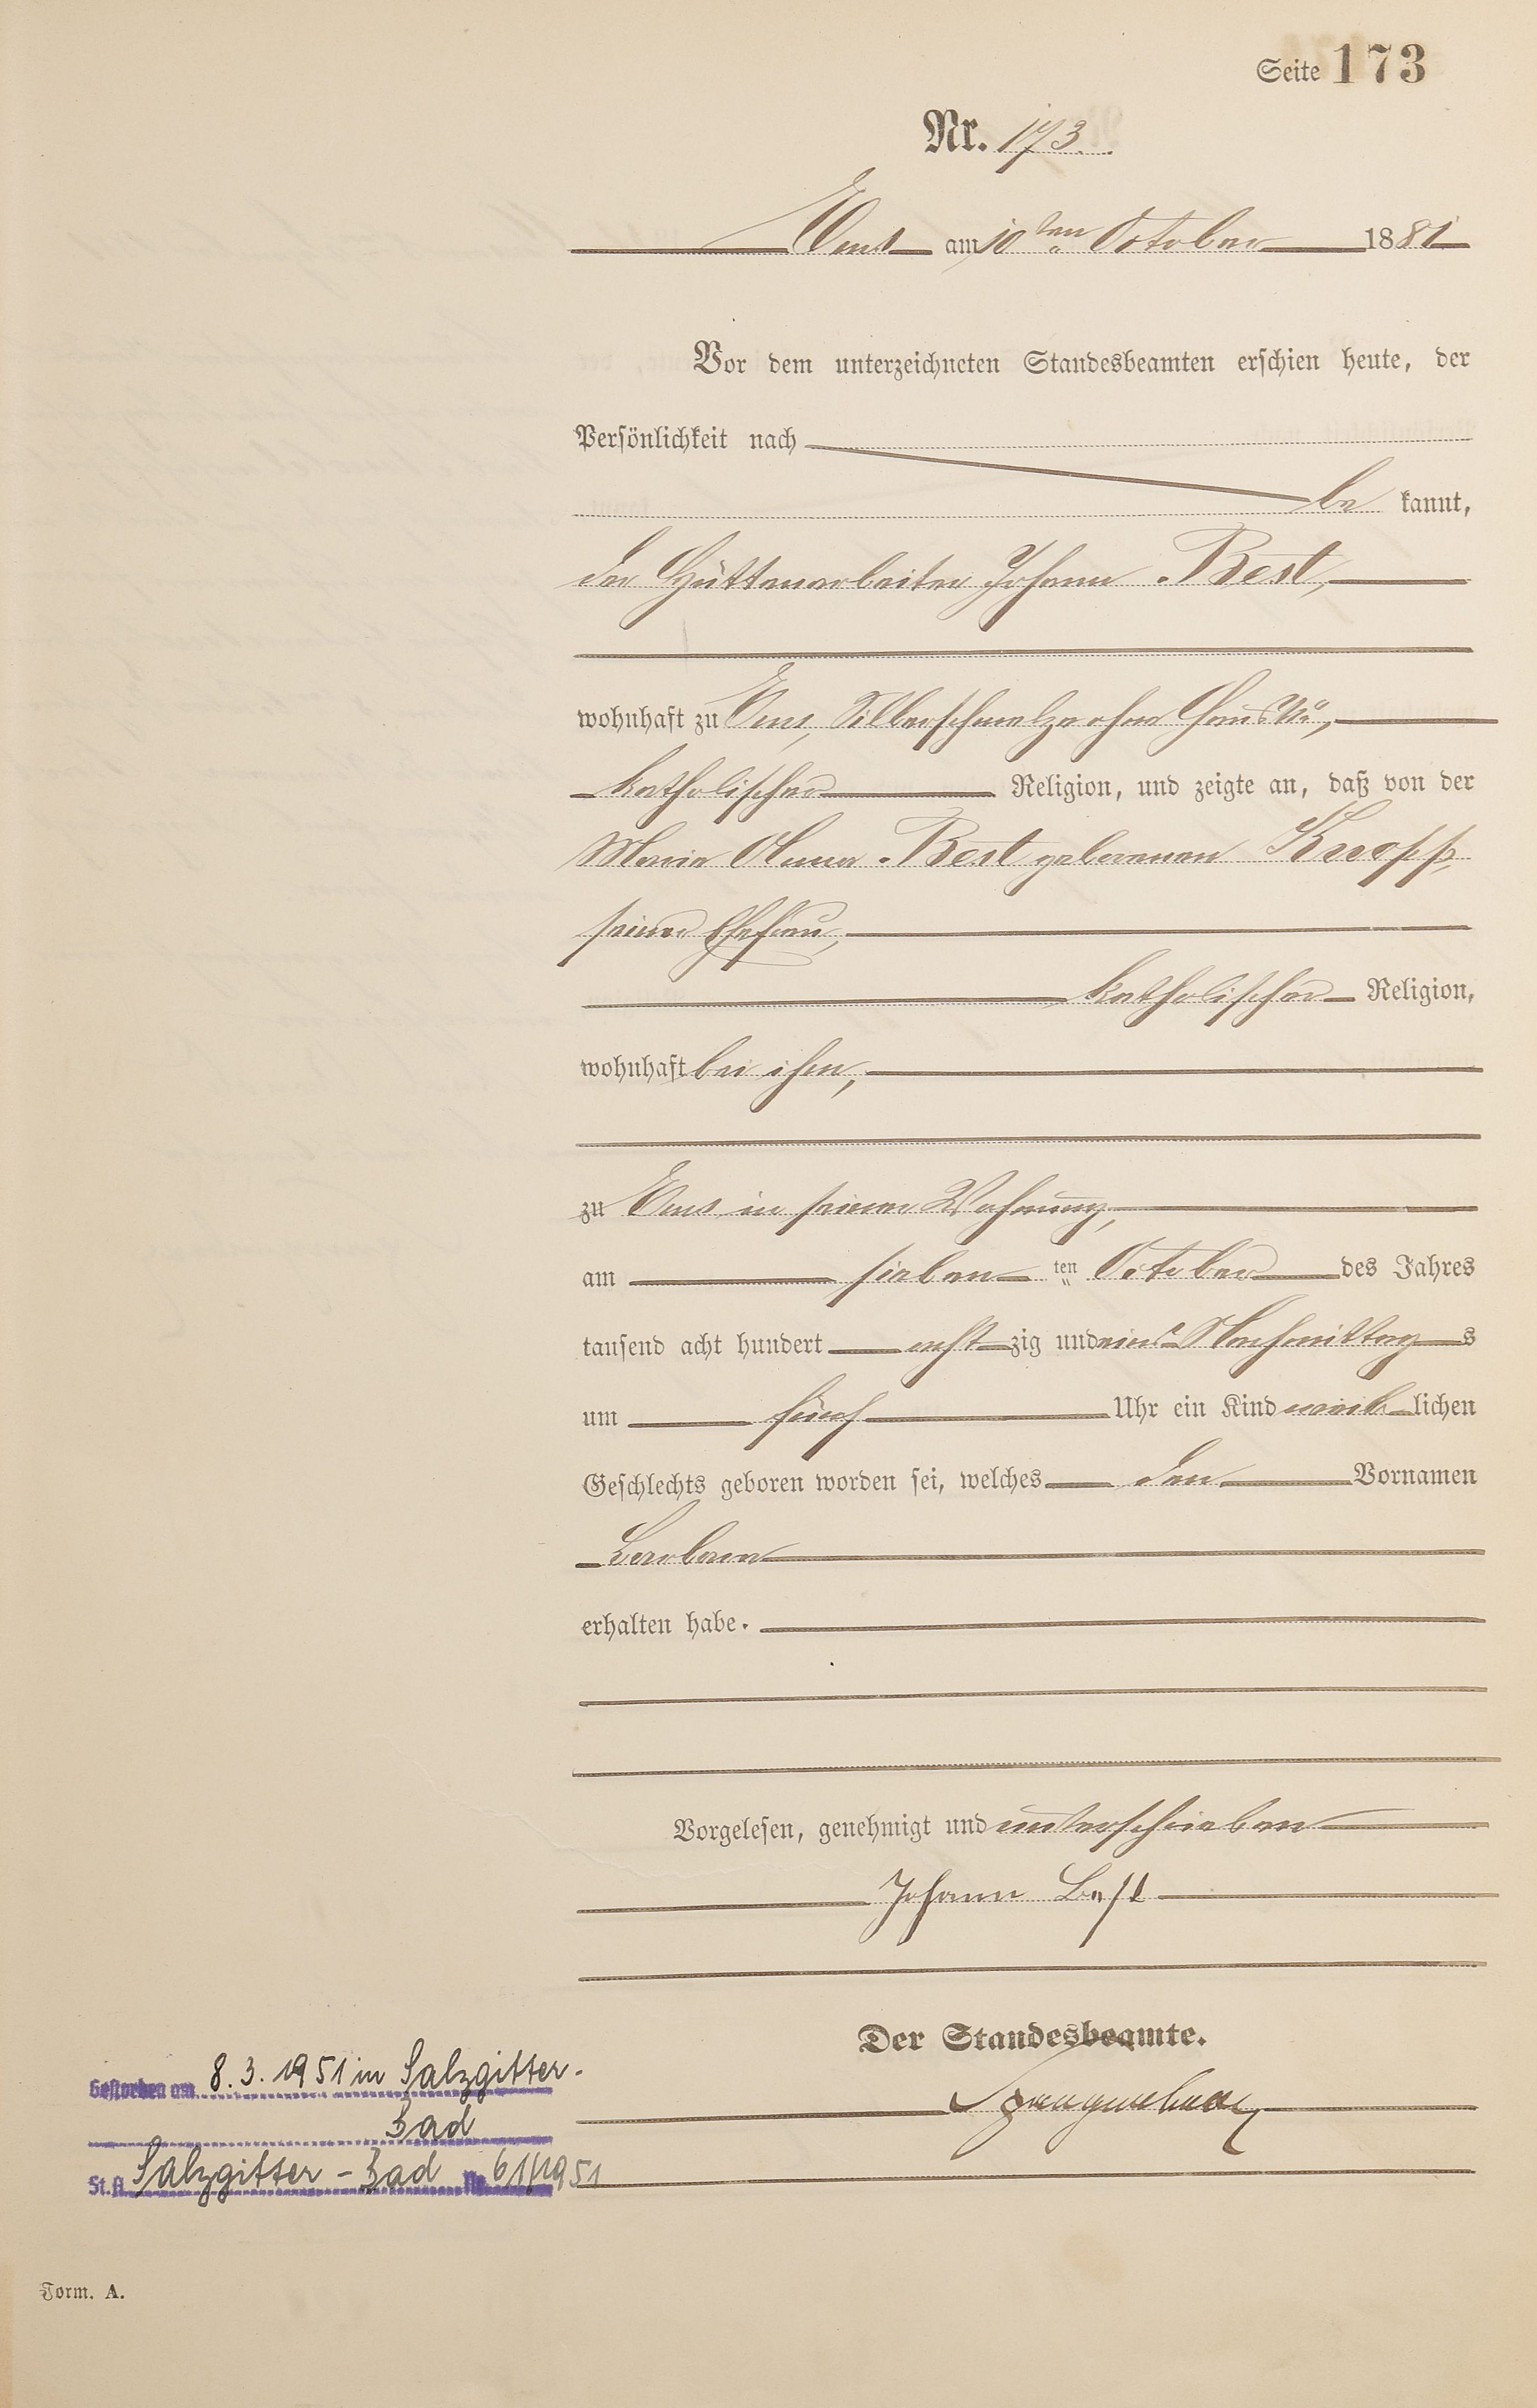 Seite 173
Nr. 173.
Ems am 10ten October 1881
Vor dem unterzeichneten Standesbeamten erschien heute, der
Persönlichkeit nach
be kannt,
der Hüttenarbeiter Johann Best,
wohnhaft zu Ems, Silberschmelze ohne Haus No,
katholischer Religion, und zeigte an, daß von der
Maria Anna Best geborenen Knopp,
seiner Ehefrau,
katholischer Religion,
wohnhaft bei ihm,
zu Ems in seiner Wohnung,
am sieben ten October des Jahres
tausend acht hundert acht zig und eins Nachmittag s
um fünf Uhr ein Kind weib lichen
Geschlechts geboren worden sei, welches den Vornamen
Barbara
erhalten habe.
Vorgelesen, genehmigt und unterschrieben
Johann Best
Der Standesbeamte.
Gestorben am 8.3.1951 in Salzgitter-
Bad
St.A. Salzgitter-Bad Nr. 61/1951
Form. A.